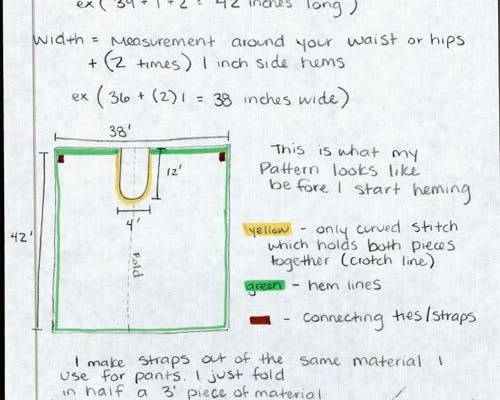 ex ( 39 + 1 + 2 = 42 inches long )
Width = Measurement around your waist or hips
+ (2 times) 1 inch side hems
ex ( 36 + (2) 1 = 38 inches wide)
38'
12'
4'
42'
Fold
This is what my
Pattern looks like
before I start heming
yellow - only curved stitch
which holds both pieces
together (crotch line)
green - hem lines
- connecting ties/straps
I make straps out of the same material I
use for pants. I just fold
in half a 3' piece of material